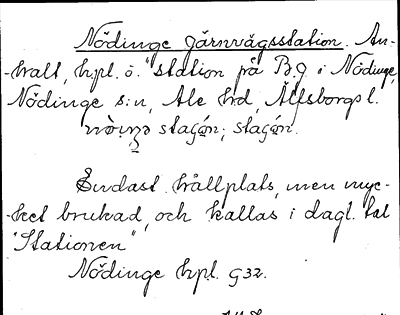 Nödinge järnvägsstation. An-
-halt, hpl. o. "station på BJ i Nödinge,
Nödinge s:n, Ale hd, Älfsborgs l.
stagǿn; stagǿn.
Endast hållplats, men myc-
-ket brukad, och kallas i dagl. tal
"Stationen"
Nödinge hpl. G32.